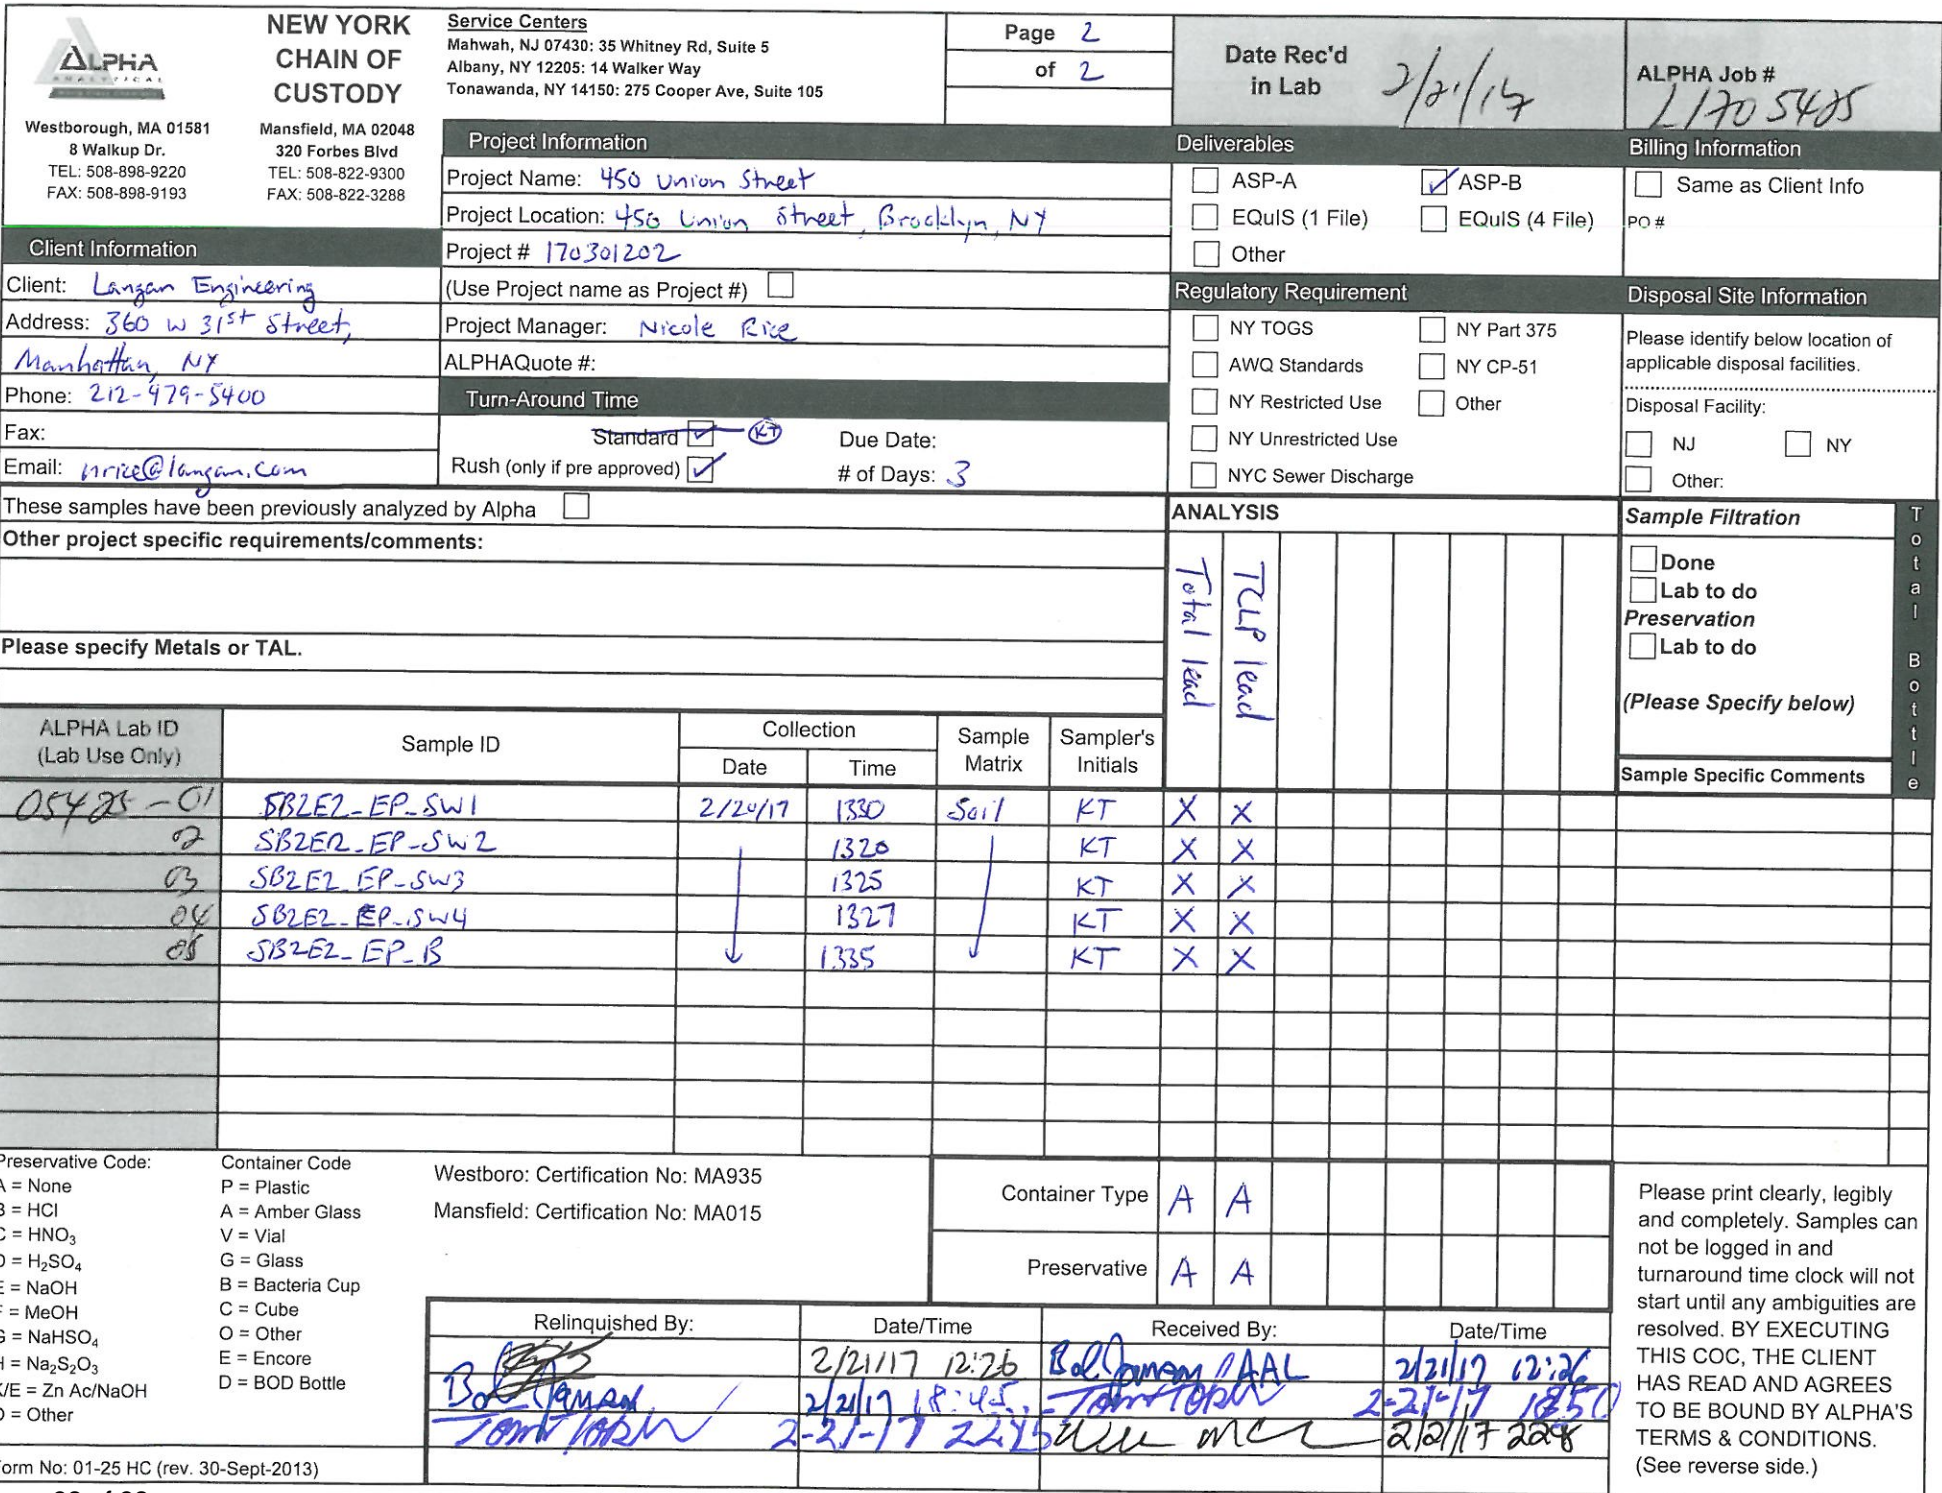 ALPHA
ANALYTICAL
NEW YORK
CHAIN OF
CUSTODY
Westborough, MA 01581
8 Walkup Dr.
TEL: 508-898-9220
FAX: 508-898-9193
Mansfield, MA 02048
320 Forbes Blvd
TEL: 508-822-9300
FAX: 508-822-3288
Service Centers
Mahwah, NJ 07430: 35 Whitney Rd, Suite 5
Albany, NY 12205: 14 Walker Way
Tonawanda, NY 14150: 275 Cooper Ave, Suite 105
Page 2
of 2
Date Rec'd
in Lab 2/21/17
ALPHA Job #
L1705425
Client Information
Client: Langan Engineering
Address: 360 W 31st Street,
Manhattan, NY
Phone: 212-479-5400
Fax:
Email: nrice@langan.com
Project Information
Project Name: 450 Union Street
Project Location: 450 Union Street, Brooklyn, NY
Project # 170301202
(Use Project name as Project #)
Project Manager: Nicole Rice
ALPHAQuote #:
Turn-Around Time
Standard KT Due Date:
Rush (only if pre approved) # of Days: 3
Deliverables
ASP-A ASP-B
EQuIS (1 File) EQuIS (4 File)
Other
Regulatory Requirement
NY TOGS NY Part 375
AWQ Standards NY CP-51
NY Restricted Use Other
NY Unrestricted Use
NYC Sewer Discharge
Billing Information
Same as Client Info
PO #
Disposal Site Information
Please identify below location of
applicable disposal facilities.
Disposal Facility:
NJ NY
Other:
These samples have been previously analyzed by Alpha
Other project specific requirements/comments:
Please specify Metals or TAL.
ANALYSIS
Total lead
TCLP lead
Sample Filtration
Done
Lab to do
Preservation
Lab to do
(Please Specify below)
Sample Specific Comments
Total Bottle
ALPHA Lab ID
(Lab Use Only)
Sample ID
Collection
Date Time
Sample
Matrix
Sampler's
Initials
05425-01 SB2E2_EP_SW1 2/20/17 1330 Soil KT X X
02 SB2E2_EP_SW2 1320 KT X X
03 SB2E2_EP_SW3 1325 KT X X
04 SB2E2_EP_SW4 1327 KT X X
05 SB2E2_EP_B 1335 KT X X
Preservative Code:
A = None
B = HCl
C = HNO3
D = H2SO4
E = NaOH
F = MeOH
G = NaHSO4
H = Na2S2O3
K/E = Zn Ac/NaOH
O = Other
Container Code
P = Plastic
A = Amber Glass
V = Vial
G = Glass
B = Bacteria Cup
C = Cube
O = Other
E = Encore
D = BOD Bottle
Westboro: Certification No: MA935
Mansfield: Certification No: MA015
Container Type A A
Preservative A A
Relinquished By: Date/Time Received By: Date/Time
2/21/17 12:26 AAL 2/21/17 12:26
2/21/17 18:45 2-21-17 1850
2-21-17 2245 2/21/17
Please print clearly, legibly
and completely. Samples can
not be logged in and
turnaround time clock will not
start until any ambiguities are
resolved. BY EXECUTING
THIS COC, THE CLIENT
HAS READ AND AGREES
TO BE BOUND BY ALPHA'S
TERMS & CONDITIONS.
(See reverse side.)
Form No: 01-25 HC (rev. 30-Sept-2013)